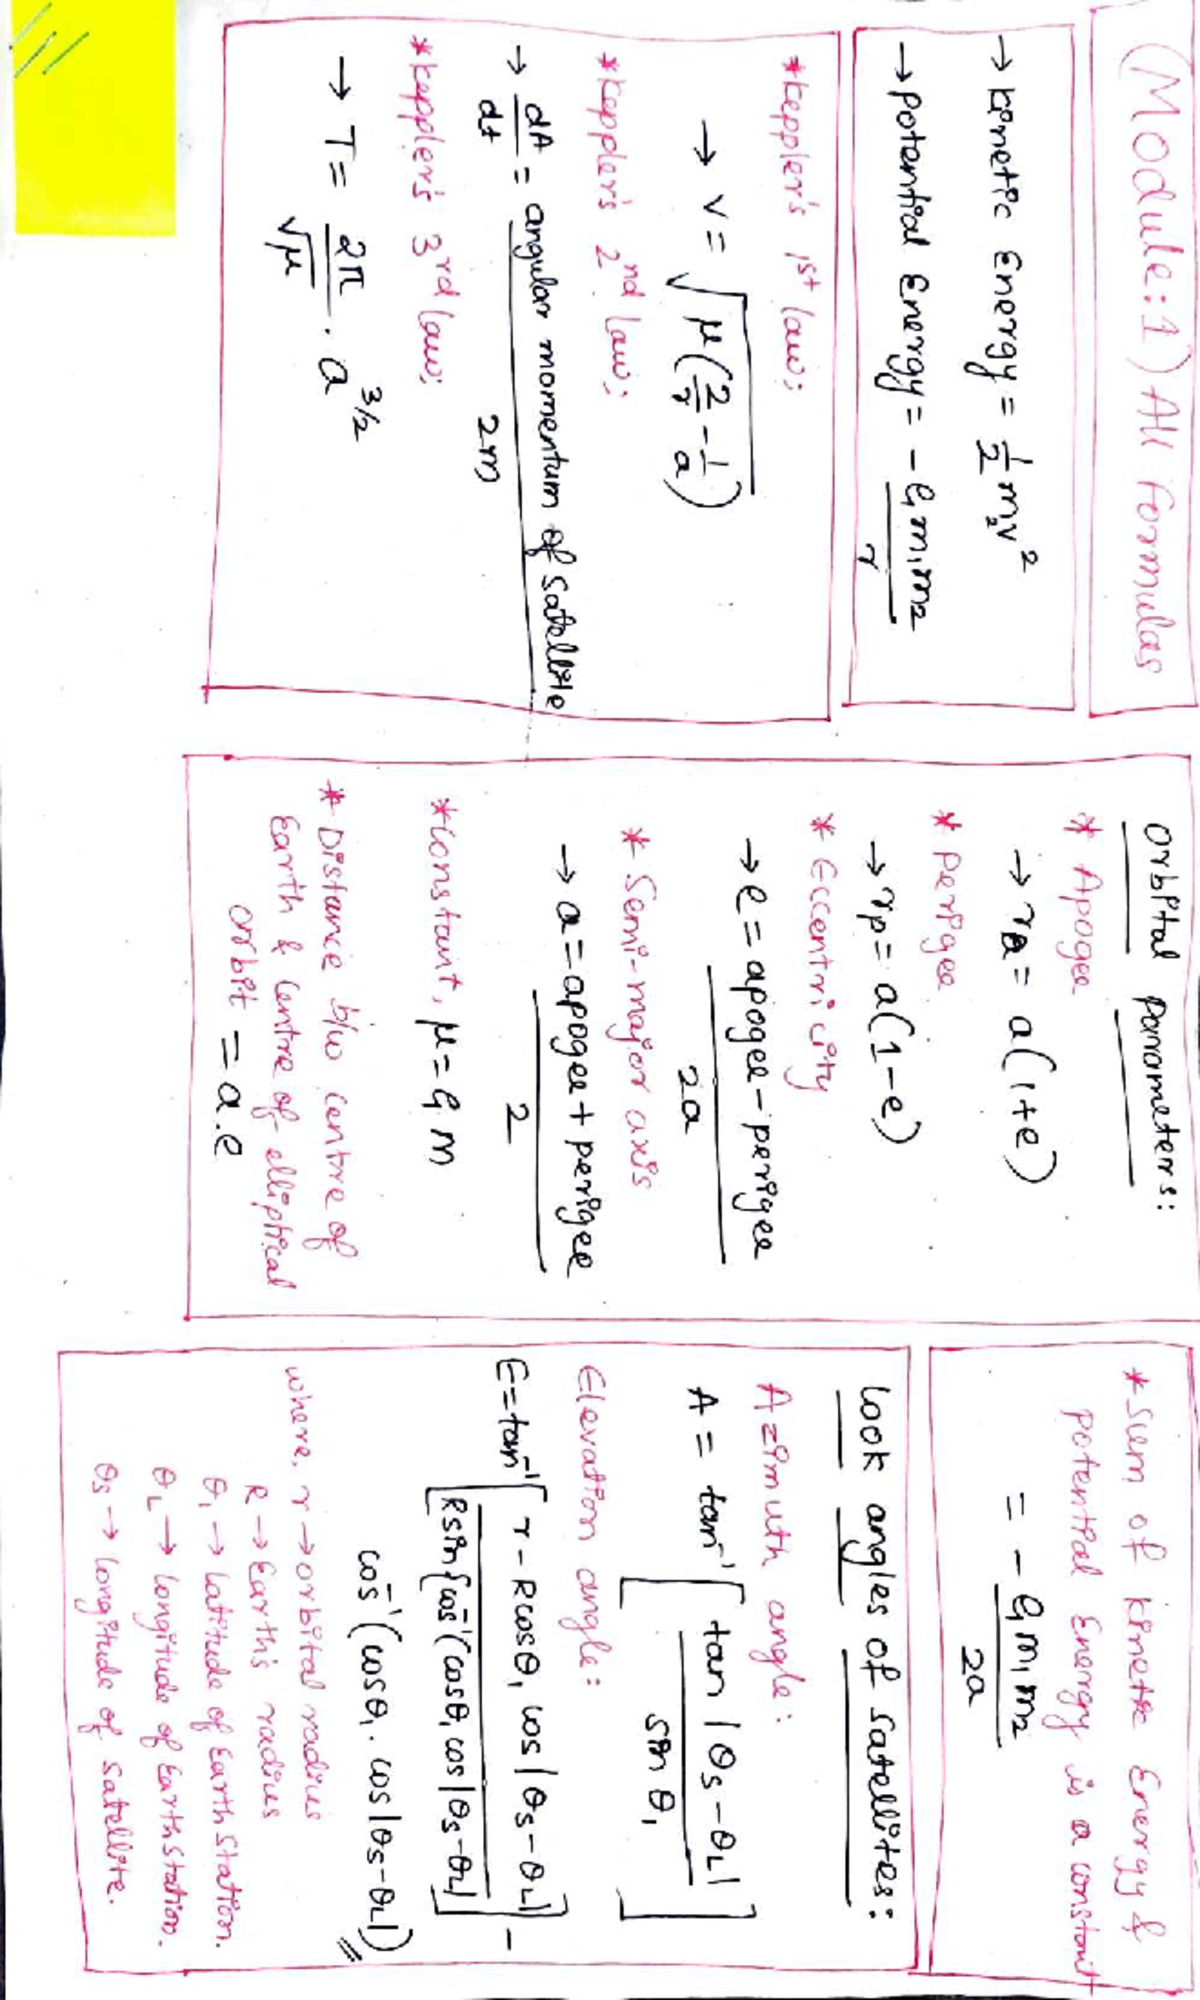 (Module:1) All Formulas
→ Kinetic Energy = 1/2 m₂v²
→ Potential Energy = - G m₁m₂ / r
*Keppler's 1st law:
→ v = √(μ(2/r - 1/a))
*Keppler's 2nd law:
→ dA/dt = angular momentum of satellite / 2m
*Keppler's 3rd law:
→ T = 2π/√μ . a^3/2
Orbital Parameters:
* Apogee
→ ra = a(1+e)
* Perigee
→ rp = a(1-e)
* Eccentricity
→ e = apogee - perigee / 2a
* Semi-major axis
→ a = apogee + perigee / 2
*Constant, μ = G m
* Distance b/w centre of
Earth & centre of elliptical
orbit = a.e
*Sum of Kinetic Energy &
Potential Energy is a constant
= - G m₁m₂ / 2a
Look angles of Satellites:
Azimuth angle:
A = tan⁻¹ [ tan |θs - θL| / sin θ₁ ]
Elevation angle:
E = tan⁻¹ [ r - R cosθ₁ cos |θs - θL| / R sin {cos⁻¹ (cosθ₁ cos |θs - θL| ] -
cos⁻¹ (cosθ₁. cos |θs - θL|)
where, r → orbital radius
R → Earth's radius
θ₁ → Latitude of Earth Station.
θL → longitude of Earth Station.
θs → longitude of Satellite.